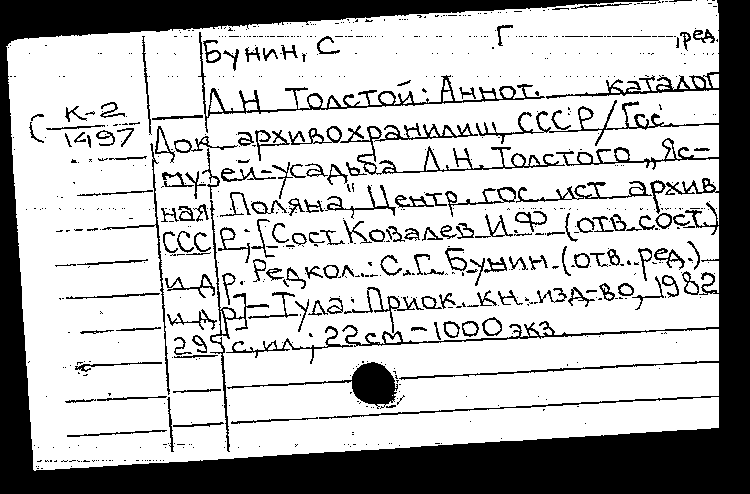 Бунин, С Г ,ред.
Л.Н Толстой: Аннот. каталог
( К-2
1497
Док. архивохранилищ СССР/Гос.
музей-усадьба Л.Н. Толстого „Яс-
ная Поляна", Центр. гос. ист архив
СССР; [Сост. Ковалев И.Ф (отв. сост.)
и др. Редкол.: С.Г. Бунин. (отв. ред.)
и др.] - Тула: Приок. кн. изд-во, 1982
295 с., ил.; 22 см. - 1000 экз.